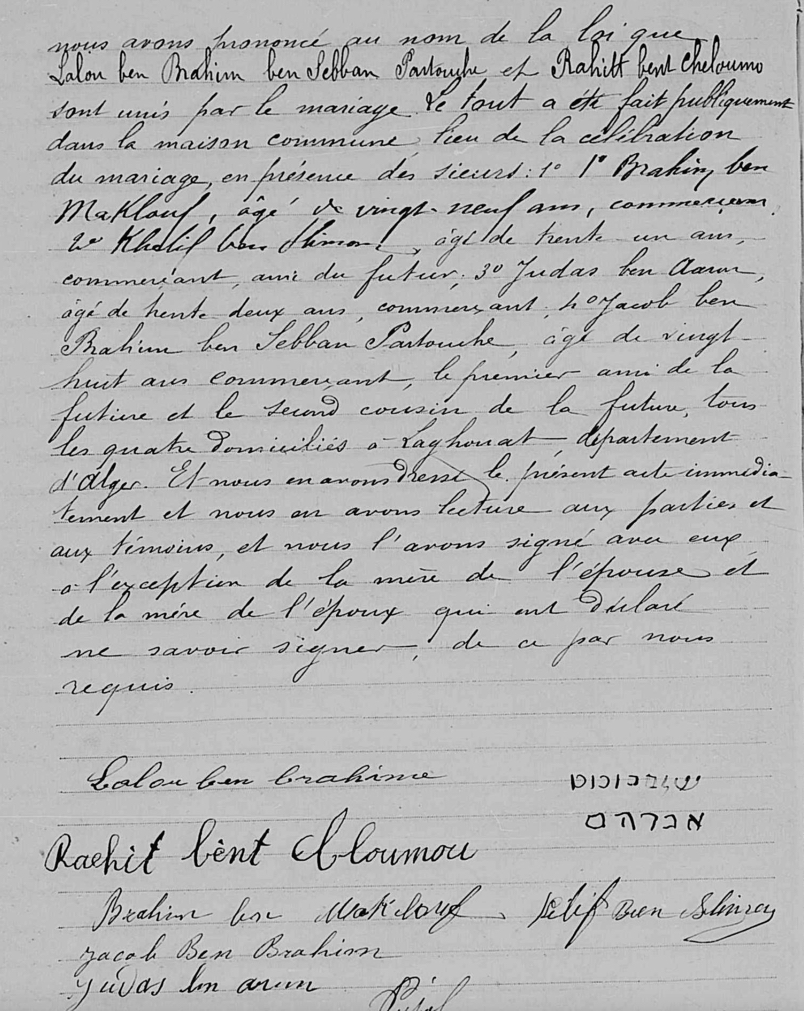 nous avons prononcé au nom de la loi que
Lalou ben Brahim ben Sebban Partouche et Rahitt bent Cheloumo
sont unis par le mariage. Le tout a été fait publiquement
dans la maison commune, lieu de la célébration
du mariage, en présence des sieurs : 1° 1° Brahim ben
Maklouf, âgé de vingt-neuf ans, commerçant
2° Khelil ben , âgé de trente un ans,
commerçant, ami du futur ; 3° Judas ben Aaron,
âgé de trente deux ans, commerçant ; 4° Jacob ben
Brahim ben Sebban Partouche, âgé de vingt-
huit ans commerçant, le premier ami de la
future et le second cousin de la future, tous
les quatre domiciliés à Laghouat, département
d'Alger. Et nous en avons dressé le présent acte immédia-
tement et nous en avons lecture aux parties et
aux témoins, et nous l'avons signé avec eux
à l'exception de la mère de l'épouse et
de la mère de l'époux qui ont déclaré
ne savoir signer, de ce par nous
requis.
Lalou ben brahime
אברהם
Rachit bent Chloumou
Brahim ben Makelouf
Jacob Ben Brahim
Judas ben aron